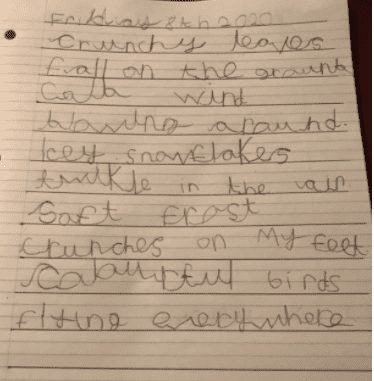 Friday 8th 2020
Crunchy leaves
fall on the ground
Cold wind
blowing around.
Icey snowflakes
twinkle in the air
Soft frost
Crunches on My feet
birds
flying everywhere